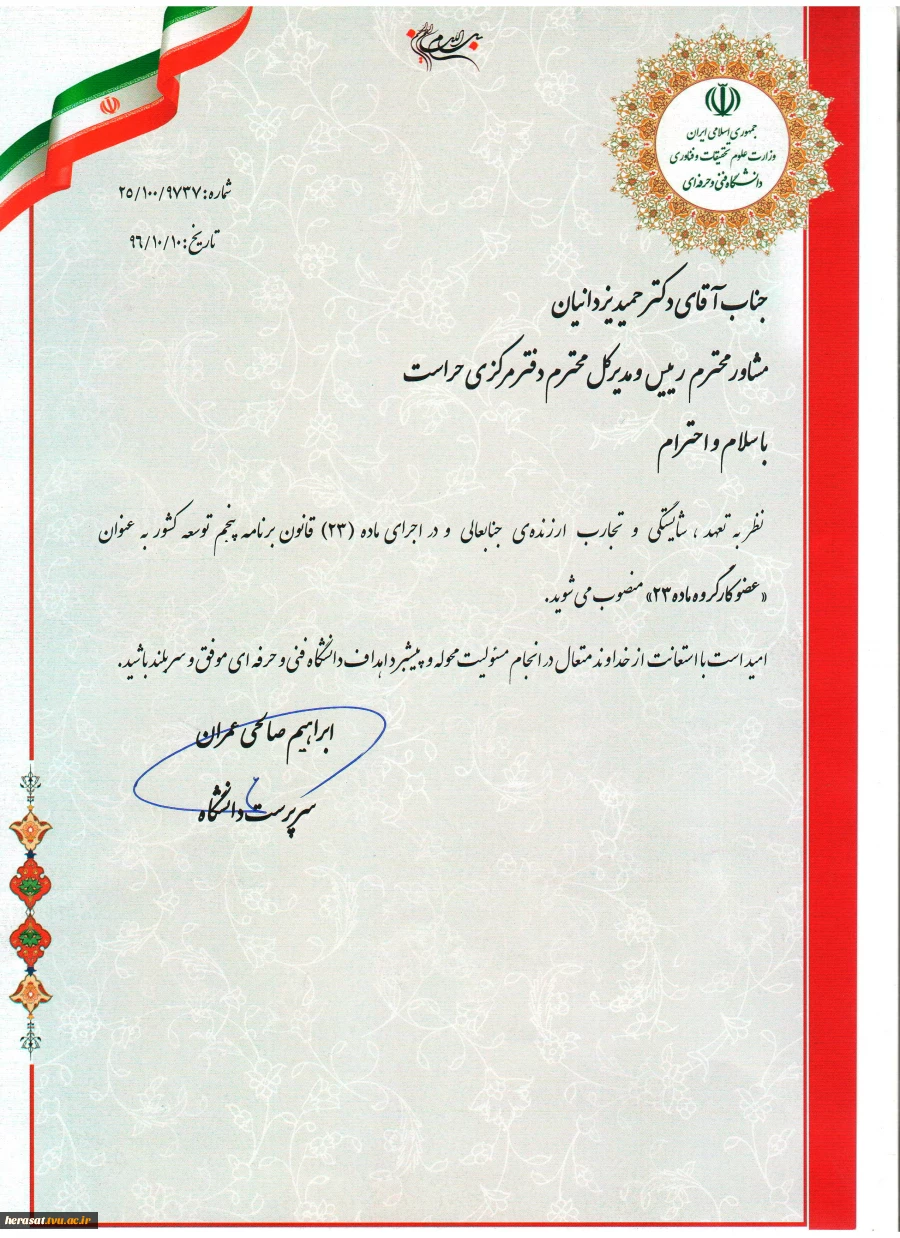 بسم الله الرحمن الرحیم
جمهوری اسلامی ایران
وزارت علوم تحقیقات و فناوری
دانشگاه فنی و حرفه ای
شماره: ۲۵/۱۰۰/۹۷۳۷
تاریخ: ۹۶/۱۰/۱۰
جناب آقای دکتر حمید یزدانیان
مشاور محترم رییس و مدیرکل محترم دفتر مرکزی حراست
با سلام و احترام
نظر به تعهد ، شایستگی و تجارب ارزنده‌ی جنابعالی و در اجرای ماده (۲۳) قانون برنامه پنجم توسعه کشور به عنوان
«عضو کارگروه ماده ۲۳» منصوب می شوید.
امید است با استعانت از خداوند متعال در انجام مسئولیت محوله و پیشبرد اهداف دانشگاه فنی و حرفه ای موفق و سربلند باشید.
ابراهیم صالحی عمران
سرپرست دانشگاه
herasat.tvu.ac.ir